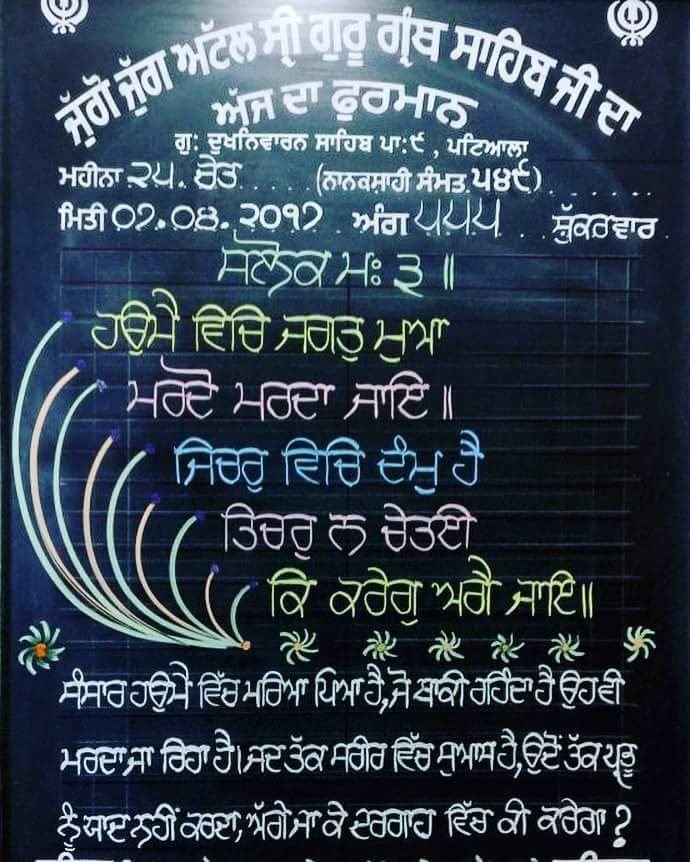 ਜੁੱਗੋ ਜੁੱਗ ਅਟੱਲ ਸ੍ਰੀ ਗੁਰੂ ਗ੍ਰੰਥ ਸਾਹਿਬ ਜੀ ਦਾ
ਅੱਜ ਦਾ ਫੁਰਮਾਨ
ਗੁ: ਦੁਖਨਿਵਾਰਨ ਸਾਹਿਬ ਪਾ:੯ , ਪਟਿਆਲਾ
ਮਹੀਨਾ ੨੫. ਚੇਤ (ਨਾਨਕਸਾਹੀ ਸੰਮਤ. ੫੪੯)
ਮਿਤੀ ੦੭.੦੪.੨੦੧੭ ਅੰਗ ੫੫੫ ਸ਼ੁੱਕਰਵਾਰ
ਸਲੋਕ ਮਃ ੩ ॥
ਹਉਮੈ ਵਿਚਿ ਜਗਤੁ ਮੁਆ
ਮਰਦੋ ਮਰਦਾ ਜਾਇ ॥
ਜਿਚਰੁ ਵਿਚਿ ਦੰਮੁ ਹੈ
ਤਿਚਰੁ ਨ ਚੇਤਈ
ਕਿ ਕਰੇਗੁ ਅਗੈ ਜਾਇ॥
ਸੰਸਾਰ ਹਉਮੈ ਵਿੱਚ ਮਰਿਆ ਪਿਆ ਹੈ,ਜੋ ਬਾਕੀ ਰਹਿੰਦਾ ਹੈ ਉਹ ਵੀ
ਮਰਦਾ ਜਾ ਰਿਹਾ ਹੈ। ਜਦ ਤੱਕ ਸਰੀਰ ਵਿੱਚ ਸੁਆਸ ਹੈ,ਉਦੋਂ ਤੱਕ ਪ੍ਰਭੂ
ਨੂੰ ਯਾਦ ਨਹੀਂ ਕਰਦਾ, ਅੱਗੇ ਜਾ ਕੇ ਦਰਗਾਹ ਵਿੱਚ ਕੀ ਕਰੇਗਾ ?